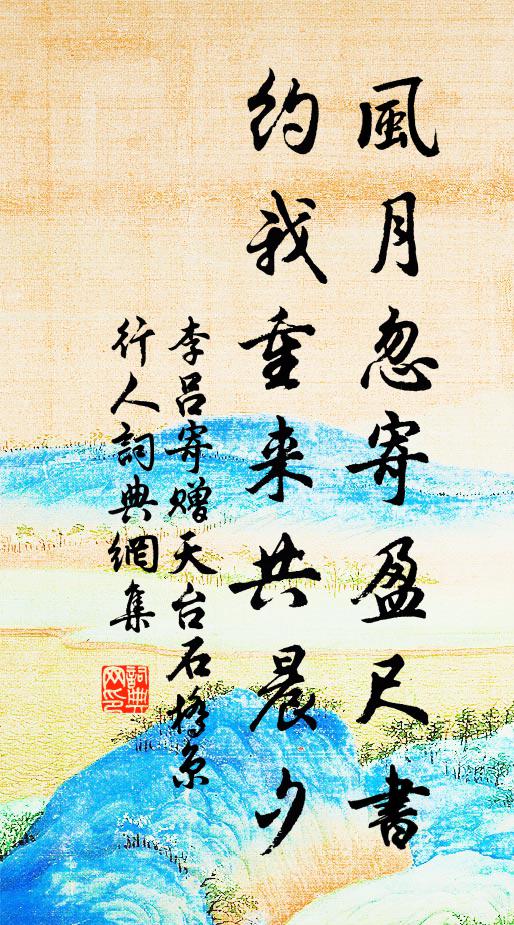 風月忽寄盈尺書
約我重来共晨夕
李呂寄赠天台石橋
行人詞典網集